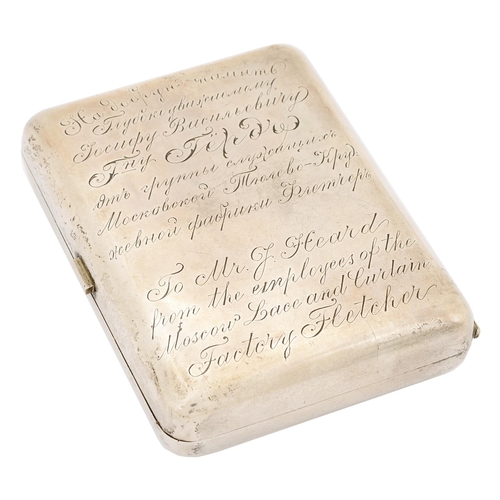 На добрую память
Глубокоуважаемому
Іосифу Васильевичу
Г-ну Г. Хердъ
отъ группы служащихъ
Московской Тюлево-Кру-
жевной фабрики Флетчеръ
To Mr. J. Heard
from the employees of the
Moscow Lace and Curtain
Factory Fletcher